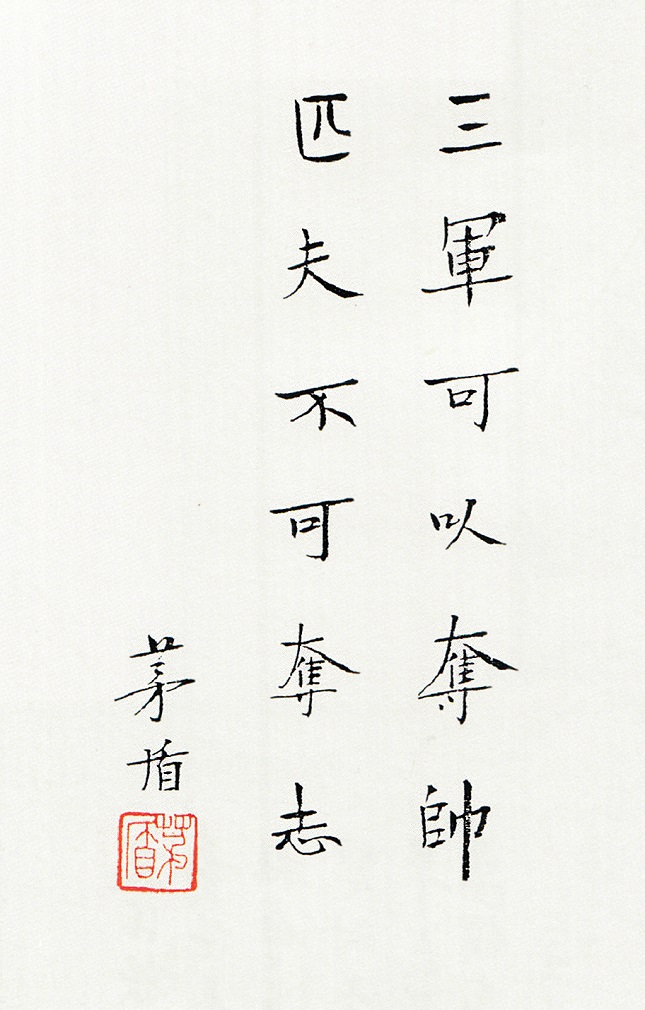 三軍可以奪帥
匹夫不可奪志
茅盾
茅盾